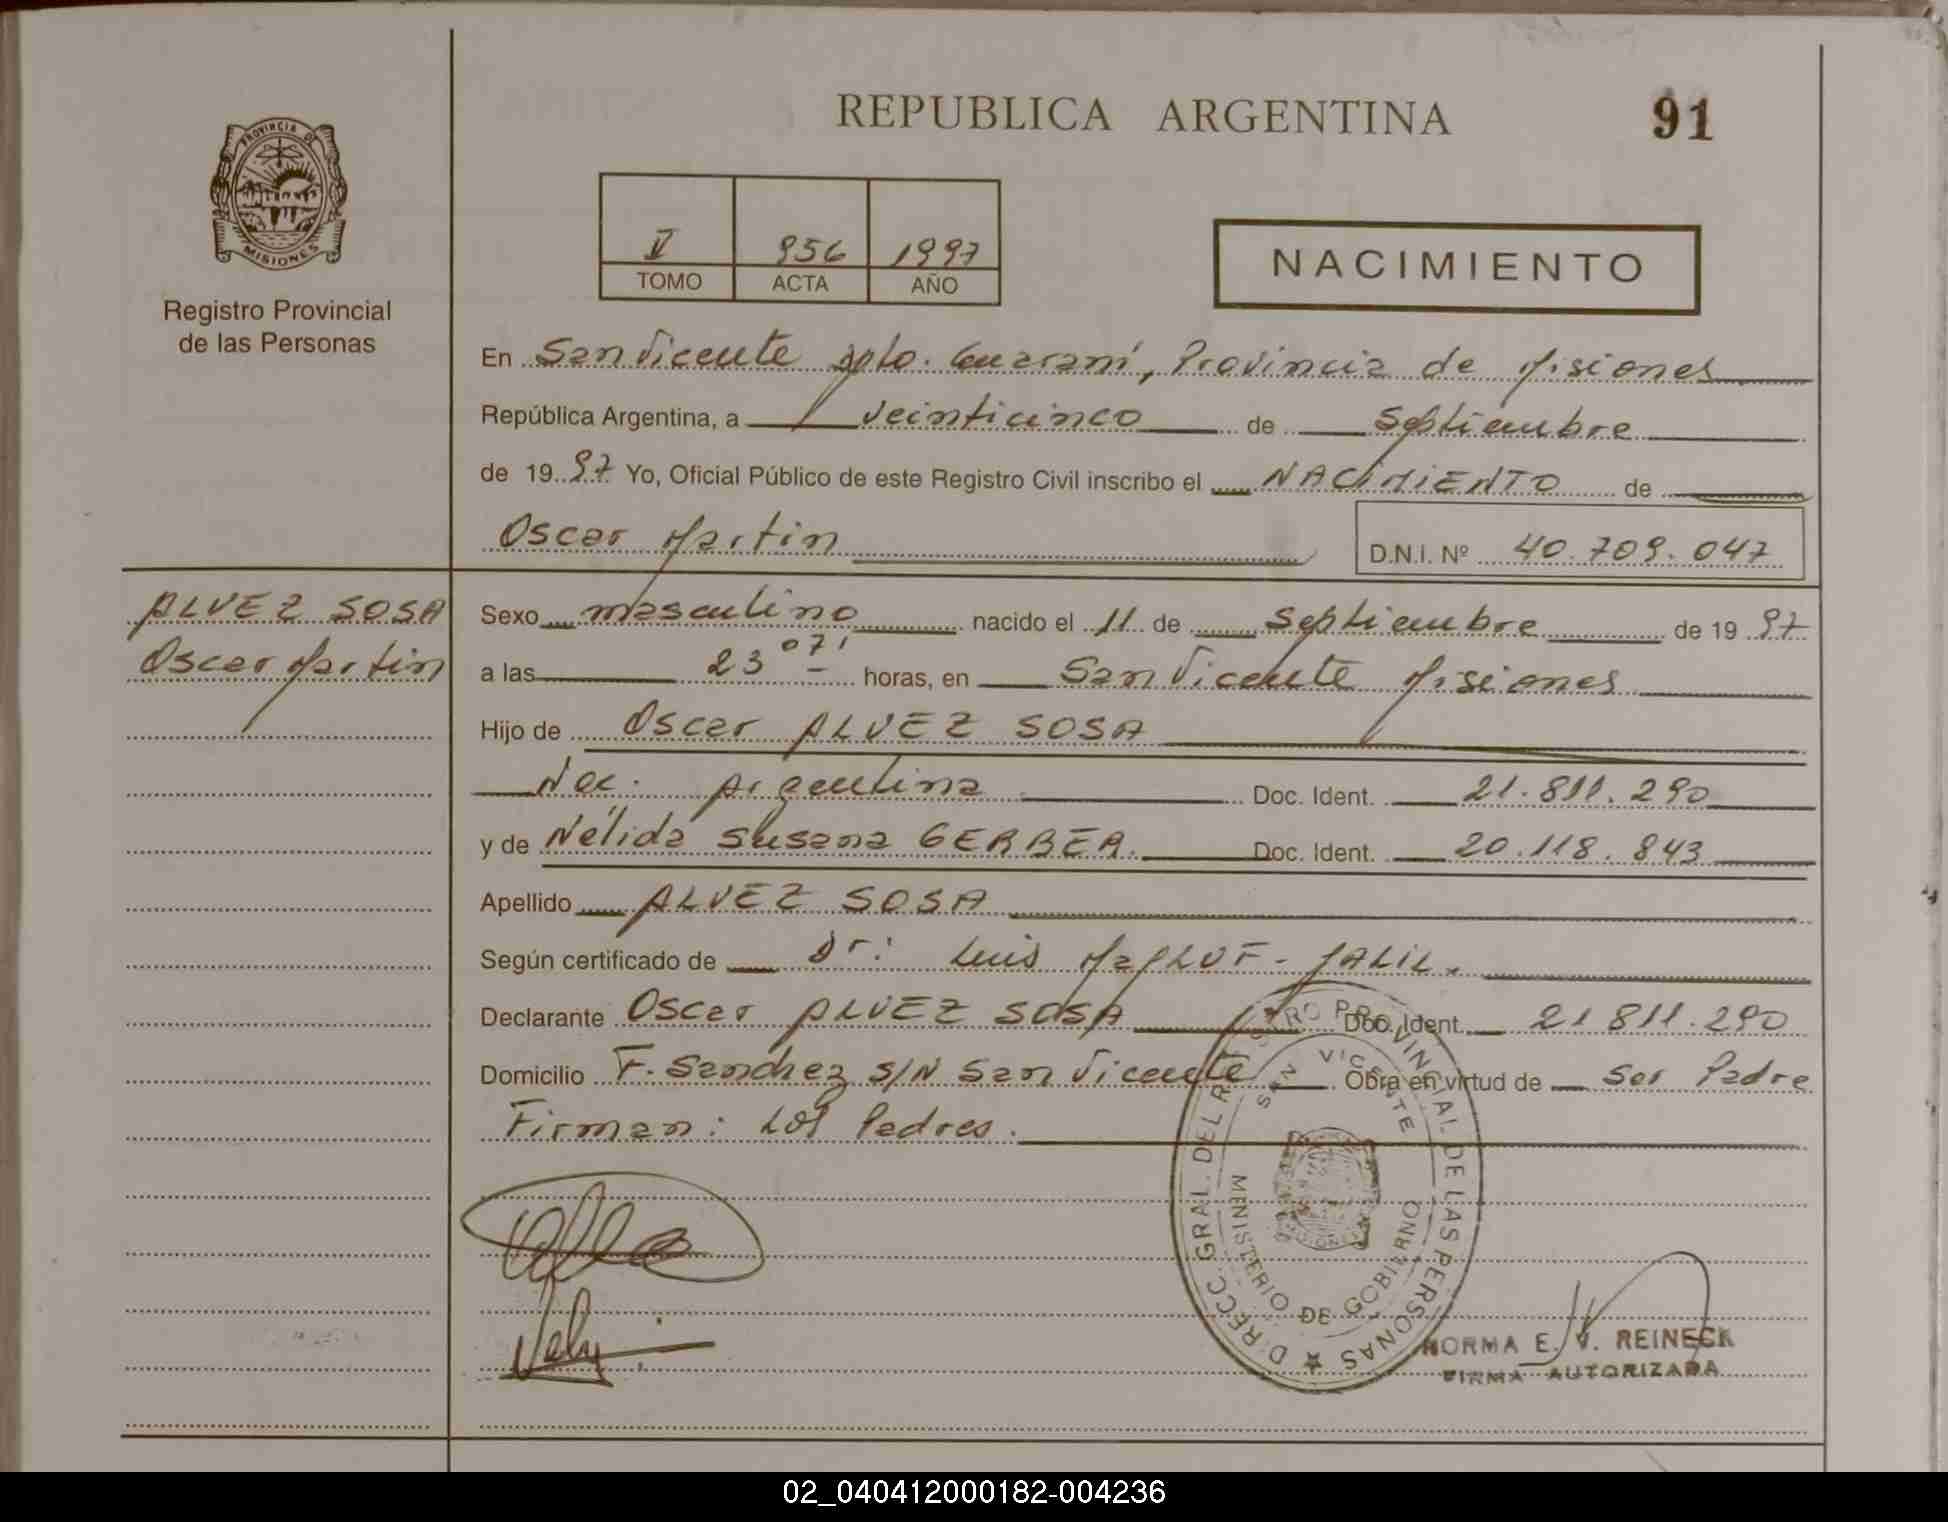 REPUBLICA ARGENTINA
91
PROVINCIA DE
MISIONES
Registro Provincial
de las Personas
V 956 1997
TOMO ACTA AÑO
NACIMIENTO
En San Vicente Dpto. Guaraní, Provincia de Misiones
República Argentina, a veinticinco de Septiembre
de 1997 Yo, Oficial Público de este Registro Civil inscribo el NACIMIENTO de
Oscar Martin D.N.I. Nº 40.709.047
ALVEZ SOSA
Oscar Martin
Sexo masculino nacido el 11 de Septiembre de 1997
a las 23 07' horas, en San Vicente Misiones
Hijo de Oscar ALVEZ SOSA
Nac. Argentina Doc. Ident. 21.811.290
y de Nélida Susana GERBER. Doc. Ident. 20.118.843
Apellido ALVEZ SOSA
Según certificado de Dr: Luis JALIL.
Declarante Oscar ALVEZ SOSA Doc. Ident. 21 811.290
Domicilio F. Sanchez S/N San Vicente Obra en virtud de Ser Padre
Firman: Los Padres.
DIRECC. GRAL. DEL REGISTRO PROVINCIAL DE LAS PERSONAS
SAN VICENTE
MINISTERIO DE GOBIERNO
Nely
NORMA E. V. REINECK
FIRMA AUTORIZADA
02_040412000182-004236